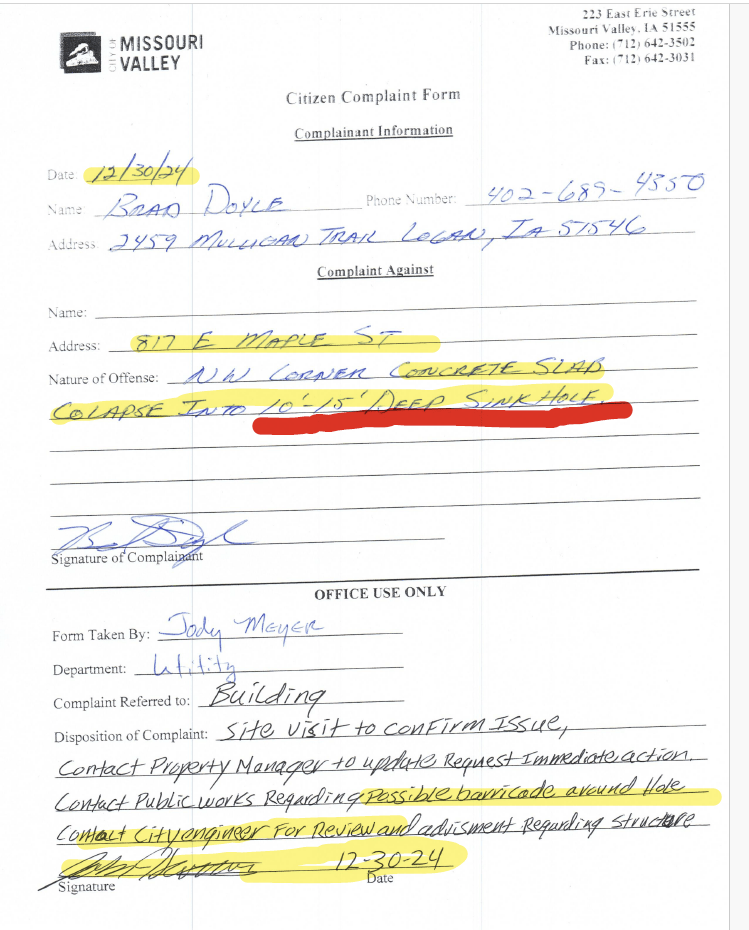 223 East Erie Street
Missouri Valley, IA 51555
Phone: (712) 642-3502
Fax: (712) 642-3031
CITY OF MISSOURI
VALLEY
Citizen Complaint Form
Complainant Information
Date: 12/30/24
Name BRAD DOYLE Phone Number: 402-689-4350
Address: 2459 MULLIGAN TRAIL LOGAN, IA 51546
Complaint Against
Name:
Address: 817 E MAPLE ST
Nature of Offense: NW CORNER CONCRETE SLAB
COLAPSE INTO 10'-15' DEEP SINK HOLE.
Signature of Complainant
OFFICE USE ONLY
Form Taken By: Jody Meyer
Department: Utility
Complaint Referred to: Building
Disposition of Complaint: Site visit to confirm Issue,
Contact Property Manager to update Request Immediate action.
Contact Public works Regarding Possible barricade around Hole
Contact City engineer For Review and advisment Regarding Structure
12-30-24
Signature Date